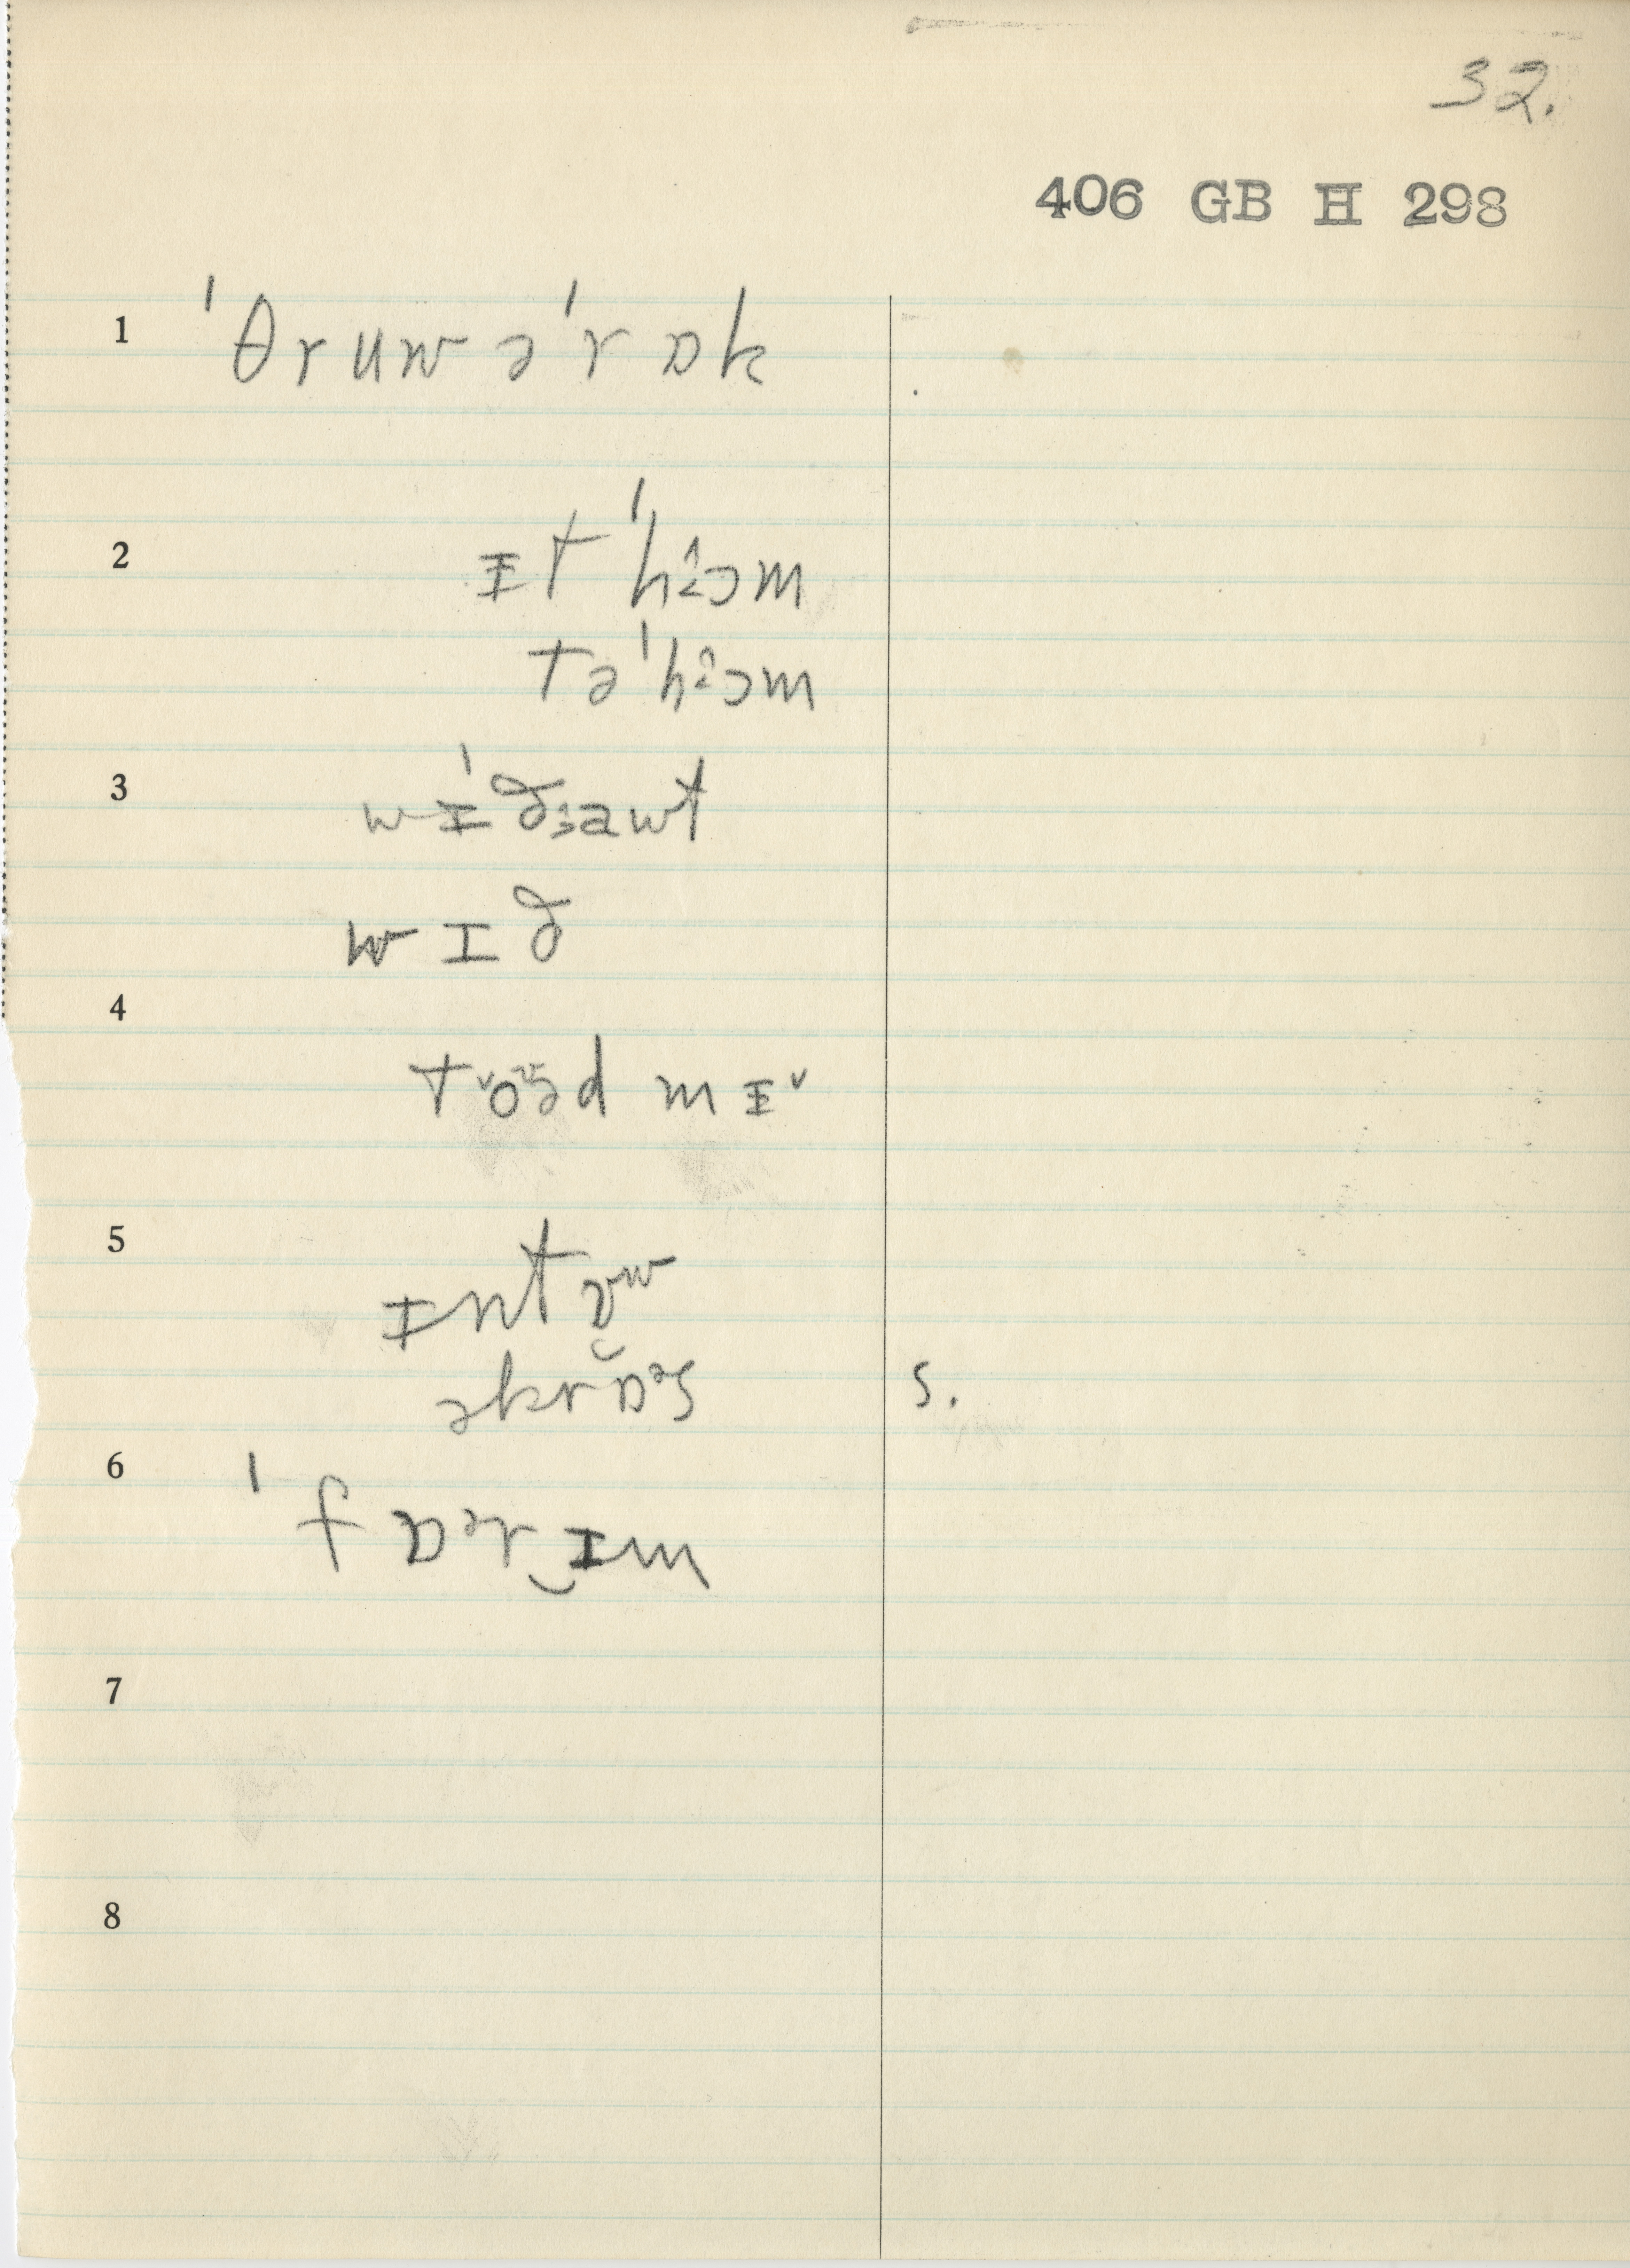 32.
406 GB II 298
1 ˈθruwəˈrɒk
2 ɪtˈhɔm
təˈhɔm
3 wɪˈðawt
wɪð
4
t˅oəd mɪ˅
5 ɪntʊʷ
əkrɒˑᵊs s.
6 ˈfɒᵊrɪm
7
8